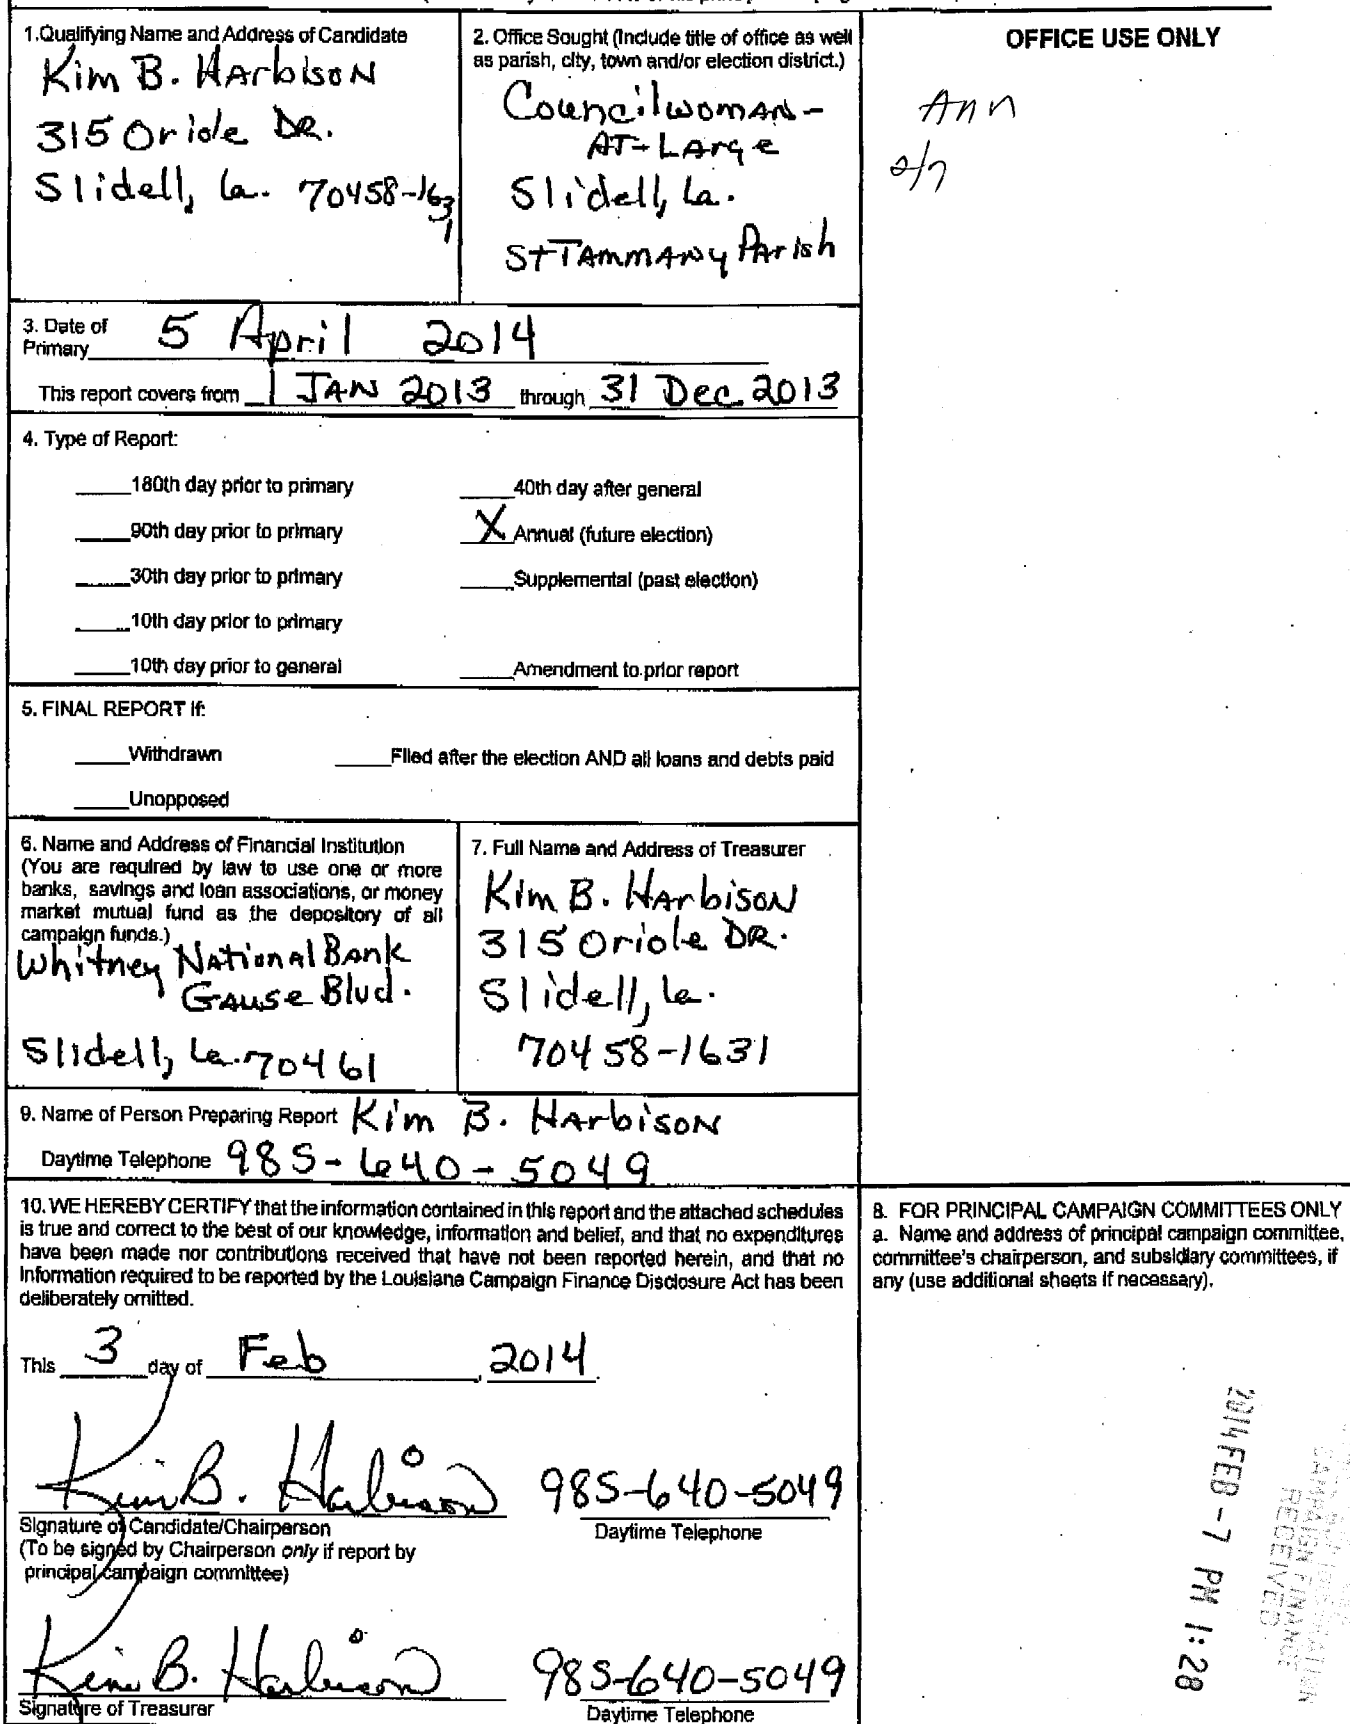 1.Qualifying Name and Address of Candidate
Kim B. Harbison
315 Oriole DR.
Slidell, La. 70458-1631
2. Office Sought (Include title of office as well
as parish, city, town and/or election district.)
Councilwoman-
AT-Large
Slidell, La.
St Tammany Parish
OFFICE USE ONLY
Ann
2/7
3. Date of
Primary 5 April 2014
This report covers from 1 JAN 2013 through 31 Dec. 2013
4. Type of Report:
180th day prior to primary
40th day after general
90th day prior to primary
X Annual (future election)
30th day prior to primary
Supplemental (past election)
10th day prior to primary
10th day prior to general
Amendment to prior report
5. FINAL REPORT if:
Withdrawn
Filed after the election AND all loans and debts paid
Unopposed
6. Name and Address of Financial Institution
(You are required by law to use one or more
banks, savings and loan associations, or money
market mutual fund as the depository of all
campaign funds.)
Whitney National Bank
Gause Blvd.
Slidell, La. 70461
7. Full Name and Address of Treasurer
Kim B. Harbison
315 Oriole DR.
Slidell, La.
70458-1631
9. Name of Person Preparing Report Kim B. Harbison
Daytime Telephone 985-640-5049
10. WE HEREBY CERTIFY that the information contained in this report and the attached schedules
is true and correct to the best of our knowledge, information and belief, and that no expenditures
have been made nor contributions received that have not been reported herein, and that no
information required to be reported by the Louisiana Campaign Finance Disclosure Act has been
deliberately omitted.
This 3 day of Feb, 2014.
Kim B. Harbison 985-640-5049
Signature of Candidate/Chairperson
Daytime Telephone
(To be signed by Chairperson only if report by
principal campaign committee)
Kim B. Harbison 985-640-5049
Signature of Treasurer
Daytime Telephone
8. FOR PRINCIPAL CAMPAIGN COMMITTEES ONLY
a. Name and address of principal campaign committee,
committee's chairperson, and subsidiary committees, if
any (use additional sheets if necessary).
CAMPAIGN FINANCE
RECEIVED
2014 FEB -7 PM 1:28